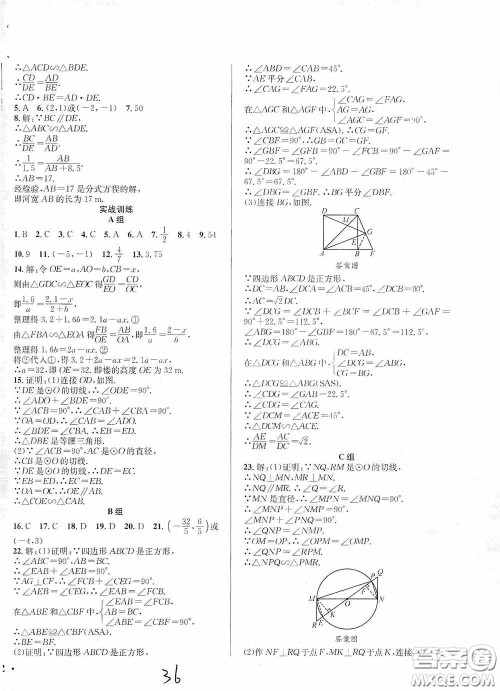 ∴△ACD∽△BDE.
∴CD/DE=AD/BE.
∴CD・BE=AD・DE.
5. A 6. (2,1)或(-2,-1) 7. 50
8. 解:∵BC∥DE,
∴△ABC∽△ADE.
∴BC/DE=AB/AD.
∴1/1.5=AB/(AB+8.5).
∴AB=17.
经检验,AB=17 是分式方程的解,
即河宽 AB 的长为 17 m.
实战训练
A 组
1. B 2. C 3. C 4. D 5. C 6. A 7. 1/2 8. 4 9. 54
10. 9 11. (-5,-1) 12. 4/7 13. 3.75
14. 解:令 OE=a,AO=b,CB=x,
则由△GDC∽△EOC 得GD/EO=CD/OC,
即1.6/a=(2.1-x)/(2.1+b-x),
整理得 3.2+1.6b=2.1a-ax,①
由△FBA∽△EOA 得FB/OE=AB/OA,
即1.6/a=(2-x)/b,
整理得 1.6b=2a-ax,②
将②代入①,得 3.2+2a-ax=2.1a-ax.
∴a=32,即 OE=32. 即楼的高度 OE 为 32 m.
15. 证明:(1)连接 OD,如图.
∵DE 是⊙O 的切线,∴∠ODE=90°,
∴∠ADO+∠BDE=90°.
∵∠ACB=90°,∴∠CAB+∠CBA=90°.
∵OA=OD,∴∠CAB=∠ADO,
∴∠BDE=∠CBA,∴EB=ED,
∴△DBE 是等腰三角形.
(2)∵∠ACB=90°,AC 是⊙O 的直径,
∴CB 是⊙O 的切线.
∵DE 是⊙O 的切线,∴DE=EC.
∵EB=ED,∴EC=EB.
∵OA=OC,∴OE∥AB,
∴△COE∽△CAB.
B 组
16. C 17. C 18. D 19. D 20. D 21. (-32/5,6/5)或
(-4,3)
22. 解:(1)证明:∵四边形 ABCD 是正方形,
∴∠ABE=∠CBF=90°,AB=BC.
∵AG⊥CF,∴∠FCB+∠CEG=90°.
∵∠AEB+∠BAE=90°,∠AEB=∠CEG,
∴∠BAE=∠FCB.
在△ABE 和△CBF 中,{∠BAE=∠FCB, AB=CB, ∠ABE=∠CBF=90°,
∴△ABE≌△CBF(ASA),∴BE=BF.
(2)证明:∵四边形 ABCD 是正方形,
∴∠ABD=∠CAB=45°.
∵AE 平分∠CAB,
∴∠CAG=∠FAG=22.5°.
在△AGC 和△AGF 中,{∠CAG=∠FAG, AG=AG, ∠AGC=∠AGF=90°,
∴△AGC≌△AGF(ASA),∴CG=GF.
∵∠CBF=90°,∴GB=GC=GF.
∴∠GBF=∠GFB=90°-∠FCB=90°-∠GAF=
90°-22.5°=67.5°,
∴∠DBG=180°-∠ABD-∠GBF=180°-45°-
67.5°=67.5°,
∴∠DBG=∠GBF. ∴BG 平分∠DBF.
(3)连接 BG,如图.
D C G M E A B F
答案图
∵四边形 ABCD 是正方形,
∴DC=AB,∠DCA=∠ACB=45°,
∠DCB=90°,∴AC=√2DC.
∵∠DCG=∠DCB+∠BCF=∠DCB+∠GAF=
90°+22.5°=112.5°,
∠ABG=180°-∠GBF=180°-67.5°=112.5°,
∴∠DCG=∠ABG.
在△DCG 和△ABG 中,{DC=AB, ∠DCG=∠ABG, CG=BG,
∴△DCG≌△ABG(SAS).
∴∠CDG=∠GAB=22.5°,
∴∠CDG=∠CAG.
∵∠DCM=∠ACE=45°,
∴△DCM∽△ACE.
∴AE/DM=AC/DC=√2.
C 组
23. 解:(1)证明:∵NQ,RM 是⊙O 的切线,
∴NQ⊥MN,RM⊥MN,∴NQ∥MR.
∵MN 是直径,∴∠MPN=∠NPQ=90°.
∵∠PNQ+∠MNP=90°,
∠MNP+∠PMN=90°,
∴∠QNP=∠PMN.
∵OM=OP,∴∠OMP=∠OPM.
∴∠OPM=∠PNQ.
∴△NPQ∽△PMR.
答案图
(2)作 NF⊥RQ 于点 F,MK⊥RQ 于点 K,连接
36